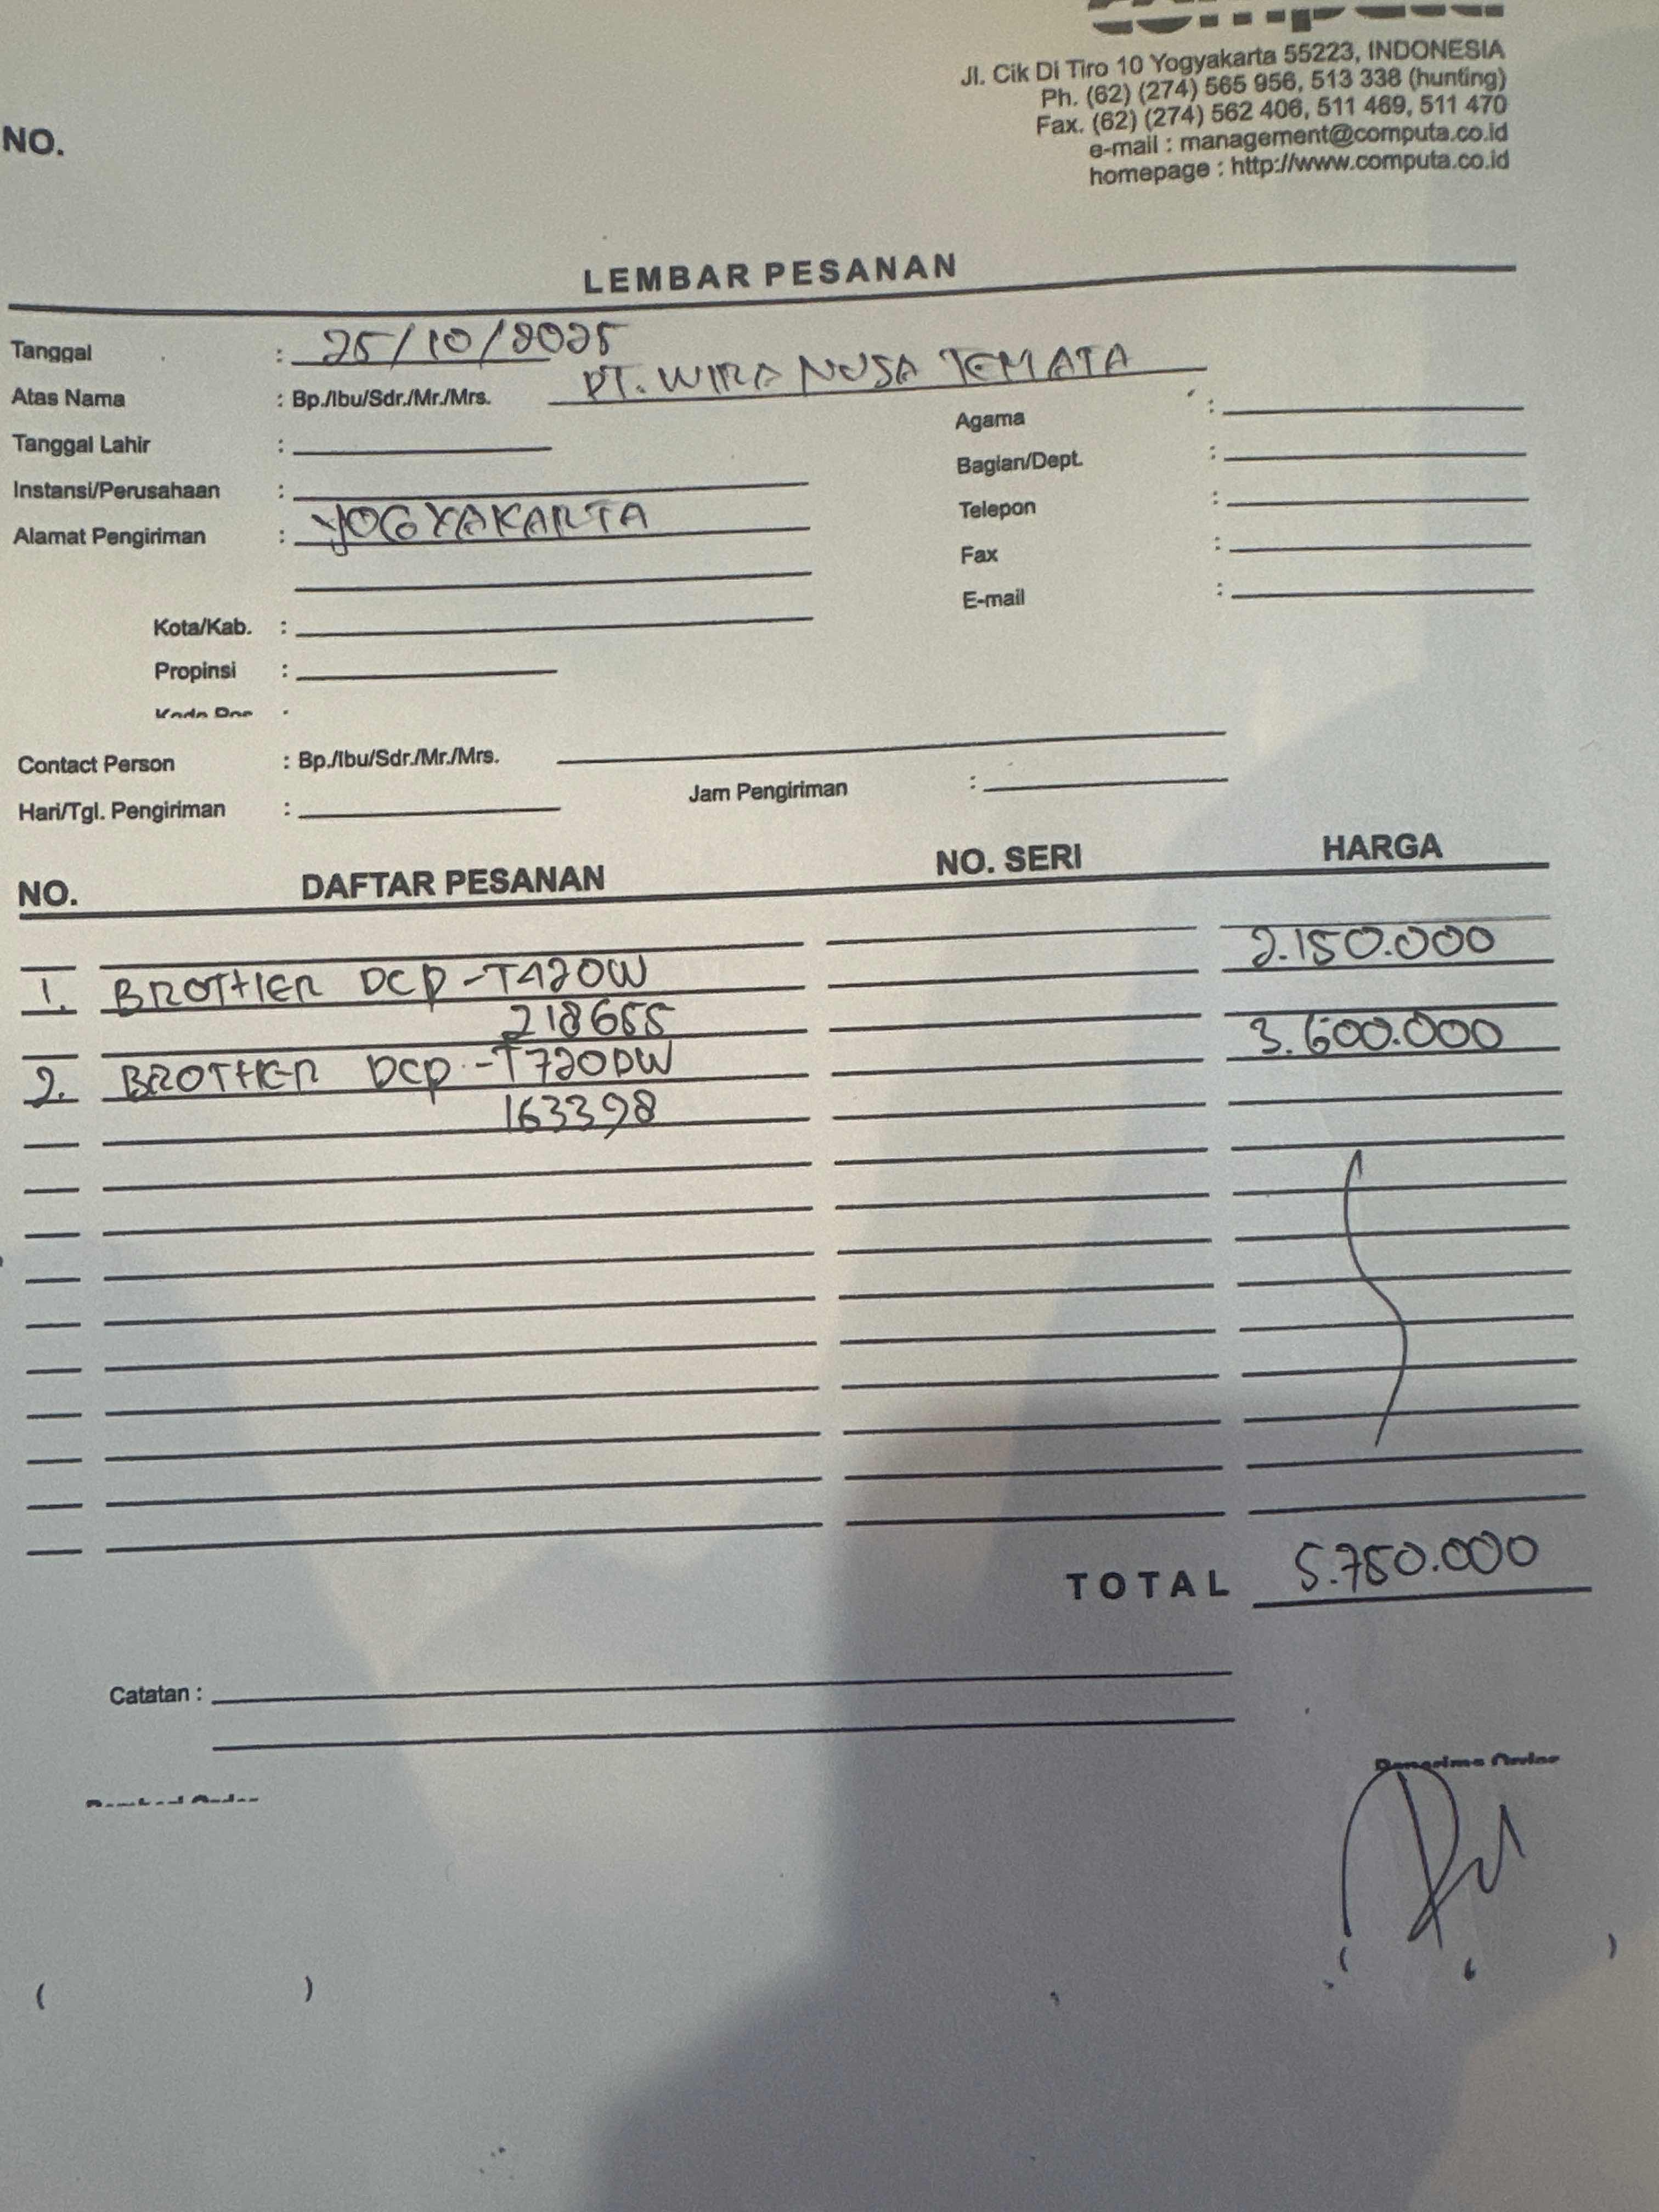 Jl. Cik Di Tiro 10 Yogyakarta 55223, INDONESIA
Ph. (62) (274) 565 956, 513 338 (hunting)
Fax. (62) (274) 562 406, 511 469, 511 470
e-mail : management@computa.co.id
homepage : http://www.computa.co.id
NO.
LEMBAR PESANAN
Tanggal : 25/10/2025
Atas Nama : Bp./Ibu/Sdr./Mr./Mrs. PT. WIRA NUSA TEMATA
Tanggal Lahir :
Agama :
Instansi/Perusahaan :
Bagian/Dept. :
Alamat Pengiriman : YOGYAKARTA
Telepon :
Fax :
E-mail :
Kota/Kab. :
Propinsi :
Kode Pos :
Contact Person : Bp./Ibu/Sdr./Mr./Mrs.
Hari/Tgl. Pengiriman : Jam Pengiriman :
NO. DAFTAR PESANAN NO. SERI HARGA
1. BROTHER DCP-T420W 2.150.000
218655
2. BROTHER DCP-T720DW 3.600.000
163398
TOTAL 5.750.000
Catatan :
Pemberi Order Penerima Order
( ) ( )